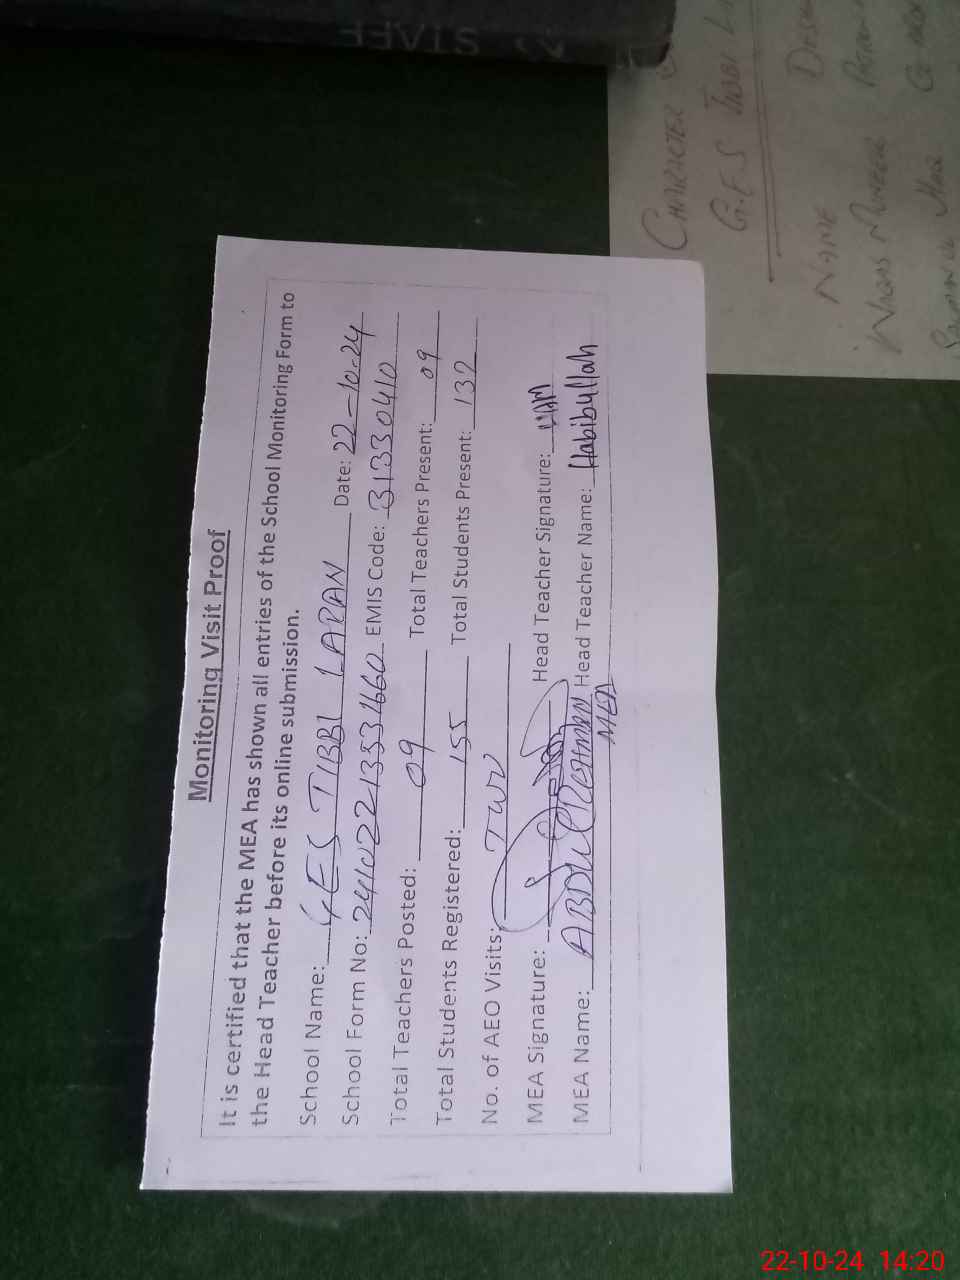 STAFF
CHARACTER
G.E.S TIBBI L
NAME
WAQAS MUNEER
Monitoring Visit Proof
It is certified that the MEA has shown all entries of the School Monitoring Form to
the Head Teacher before its online submission.
School Name: GES TIBBI LARAN Date: 22-10-24
School Form No: EMIS Code: 31330410
Total Teachers Posted: 09 Total Teachers Present: 09
Total Students Registered: 155 Total Students Present: 132
No. of AEO Visits: TWO
MEA Signature: Head Teacher Signature:
MEA Name: ABDUL REHMAN Head Teacher Name: Habibullah
MEA
22-10-24 14:20